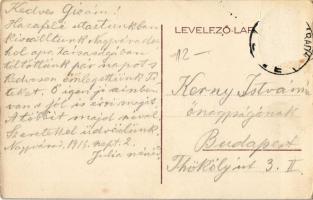 Kedves Gizám!
Hazafelé utaztunkban
kiszálltunk Nagyváradon
hol apa társaságában
töltöttünk pár napot s
kedvesen emlegettünk Ti-
teket. Ő igen jó színben
van s jól is érzi magát.
A többit majd szóval.
Szeretettel üdvözlünk
Nagyvárad, 191 szept. 2.
Julia néni
LEVELEZŐ-LAP
12-
Kerny István
úrnak
Budapest
Thököly út 3. II.